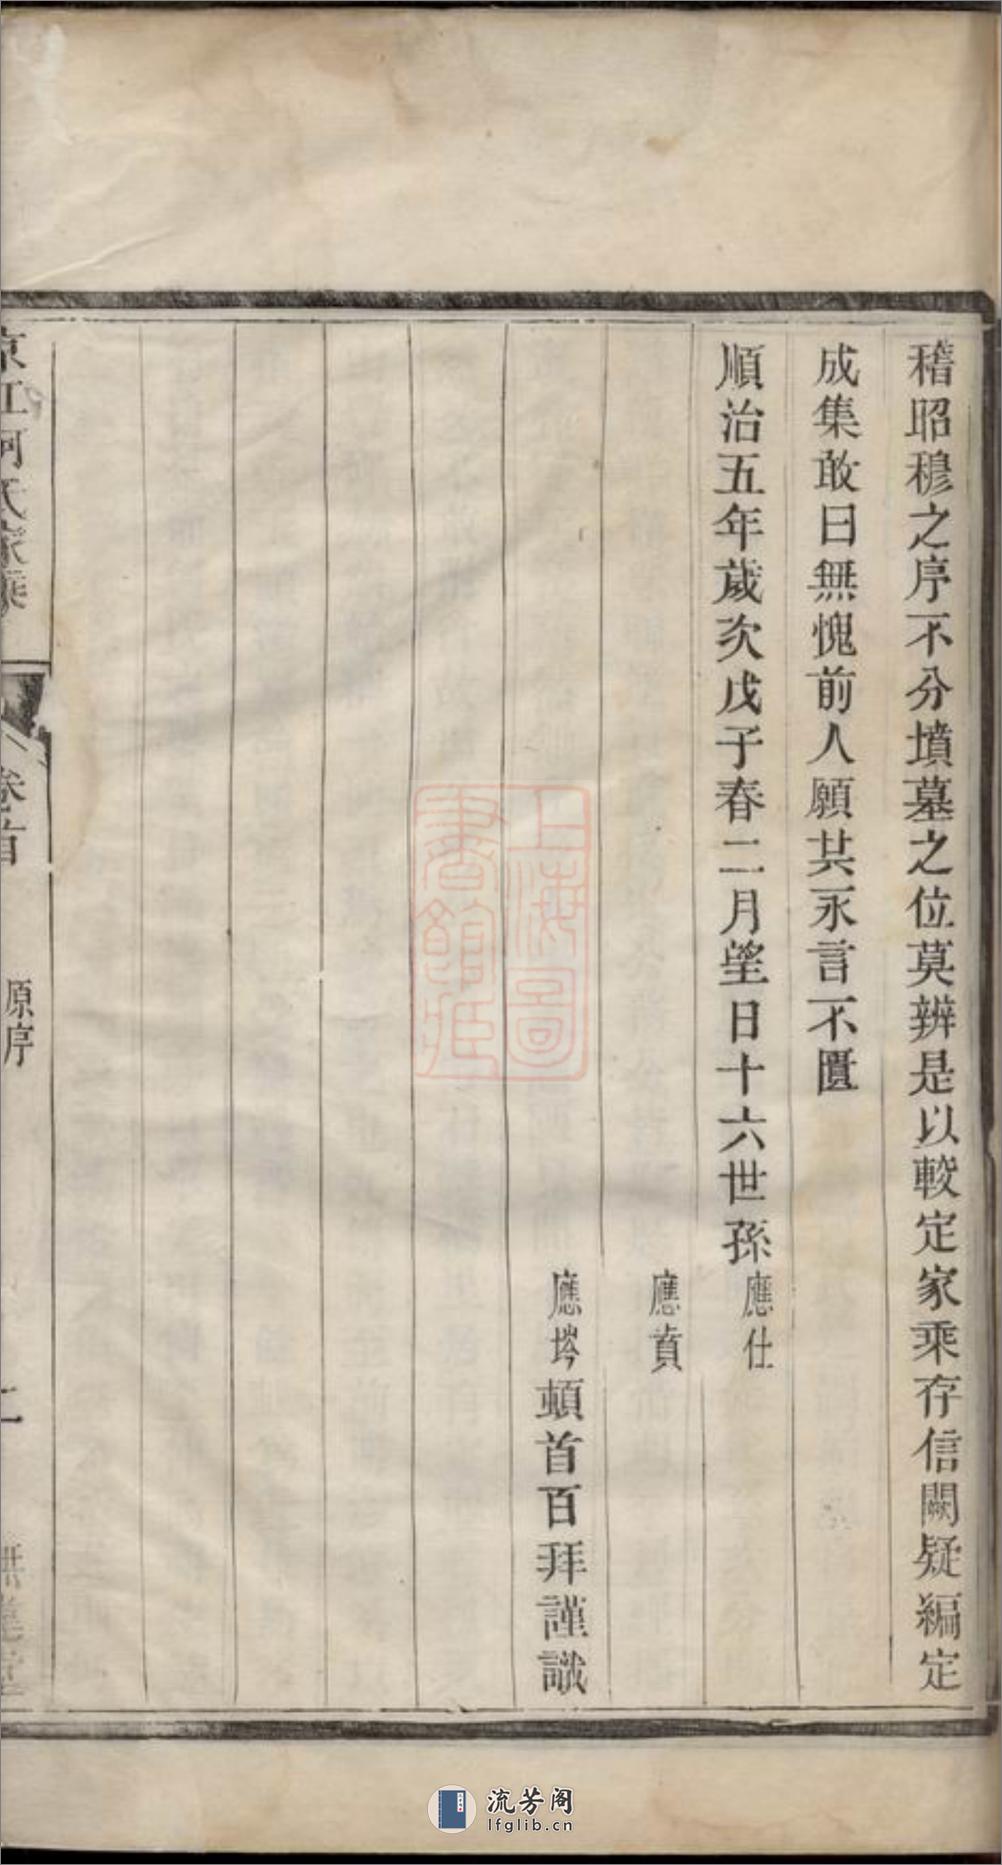 稽昭穆之序不分墳墓之位莫辨是以較定家乘存信闕疑編定
成集敢曰無愧前人願其永言不匱
順治五年歲次戊子春二月望日十六世孫應仕
應賁
應岑頓首百拜謹識
京江何氏家乘
卷首
原序
上海圖書館藏
流芳阁
lfglib.cn